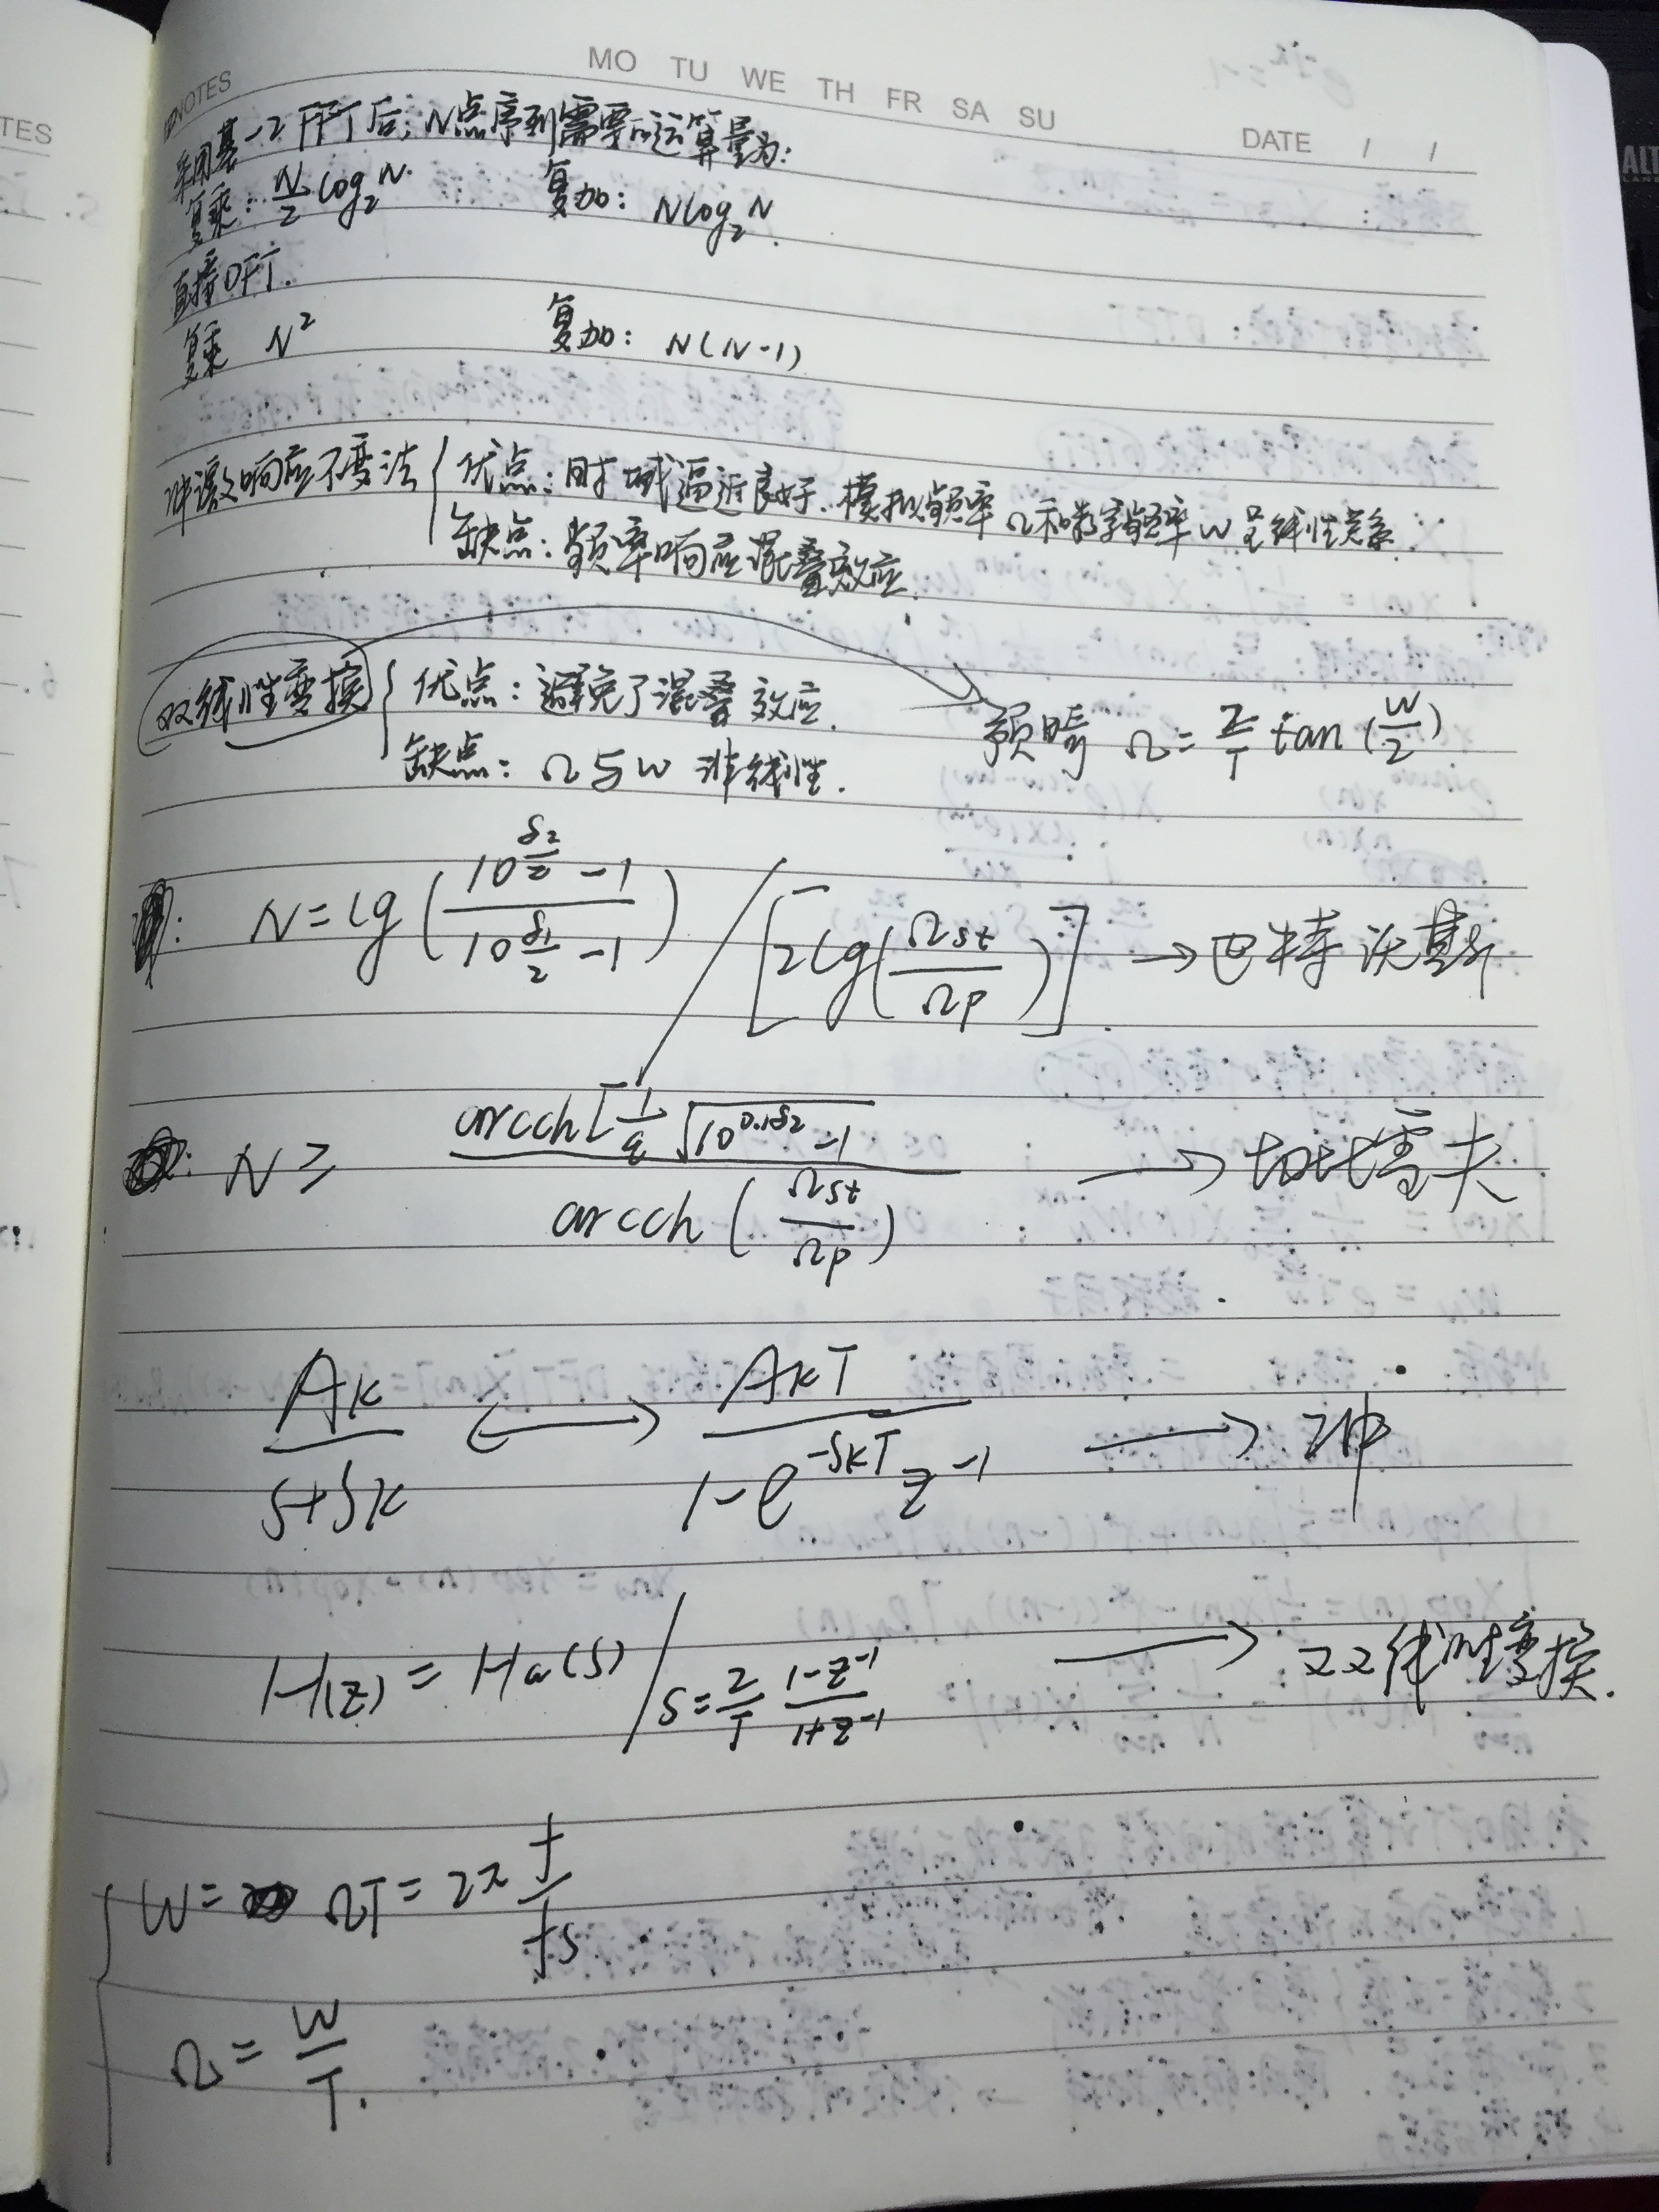 NOTES
MO TU WE TH FR SA SU
DATE / /
采用基-2 FFT后,N点序列需要的运算量为:
复乘: N/2 log₂N. 复加: Nlog₂N.
直接DFT.
复乘 N² 复加: N(N-1)
冲激响应不变法 { 优点: 时域逼近良好. 模拟频率Ω和数字频率w呈线性关系.
缺点: 频率响应混叠效应.
双线性变换 { 优点: 避免了混叠效应.
缺点: Ω与w 非线性.
预畸 Ω = 2/T tan(w/2)
: N = lg((10^(δ₂/2) -1)/(10^(δ₁/2) -1)) / [2lg(Ωst/Ωp)] → 巴特沃斯
: N ≥ arcch[1/ε √(10^(0.1δ₂) -1)] / arcch(Ωst/Ωp) → 切比雪夫
Ak/(s+sk) ↔ AkT/(1-e^(-skT) z⁻¹) → 冲
H(z) = Ha(s) | s = 2/T (1-z⁻¹)/(1+z⁻¹) → 双线性变换.
{ w = ΩT = 2π f/fs
Ω = w/T.
TES
ALT